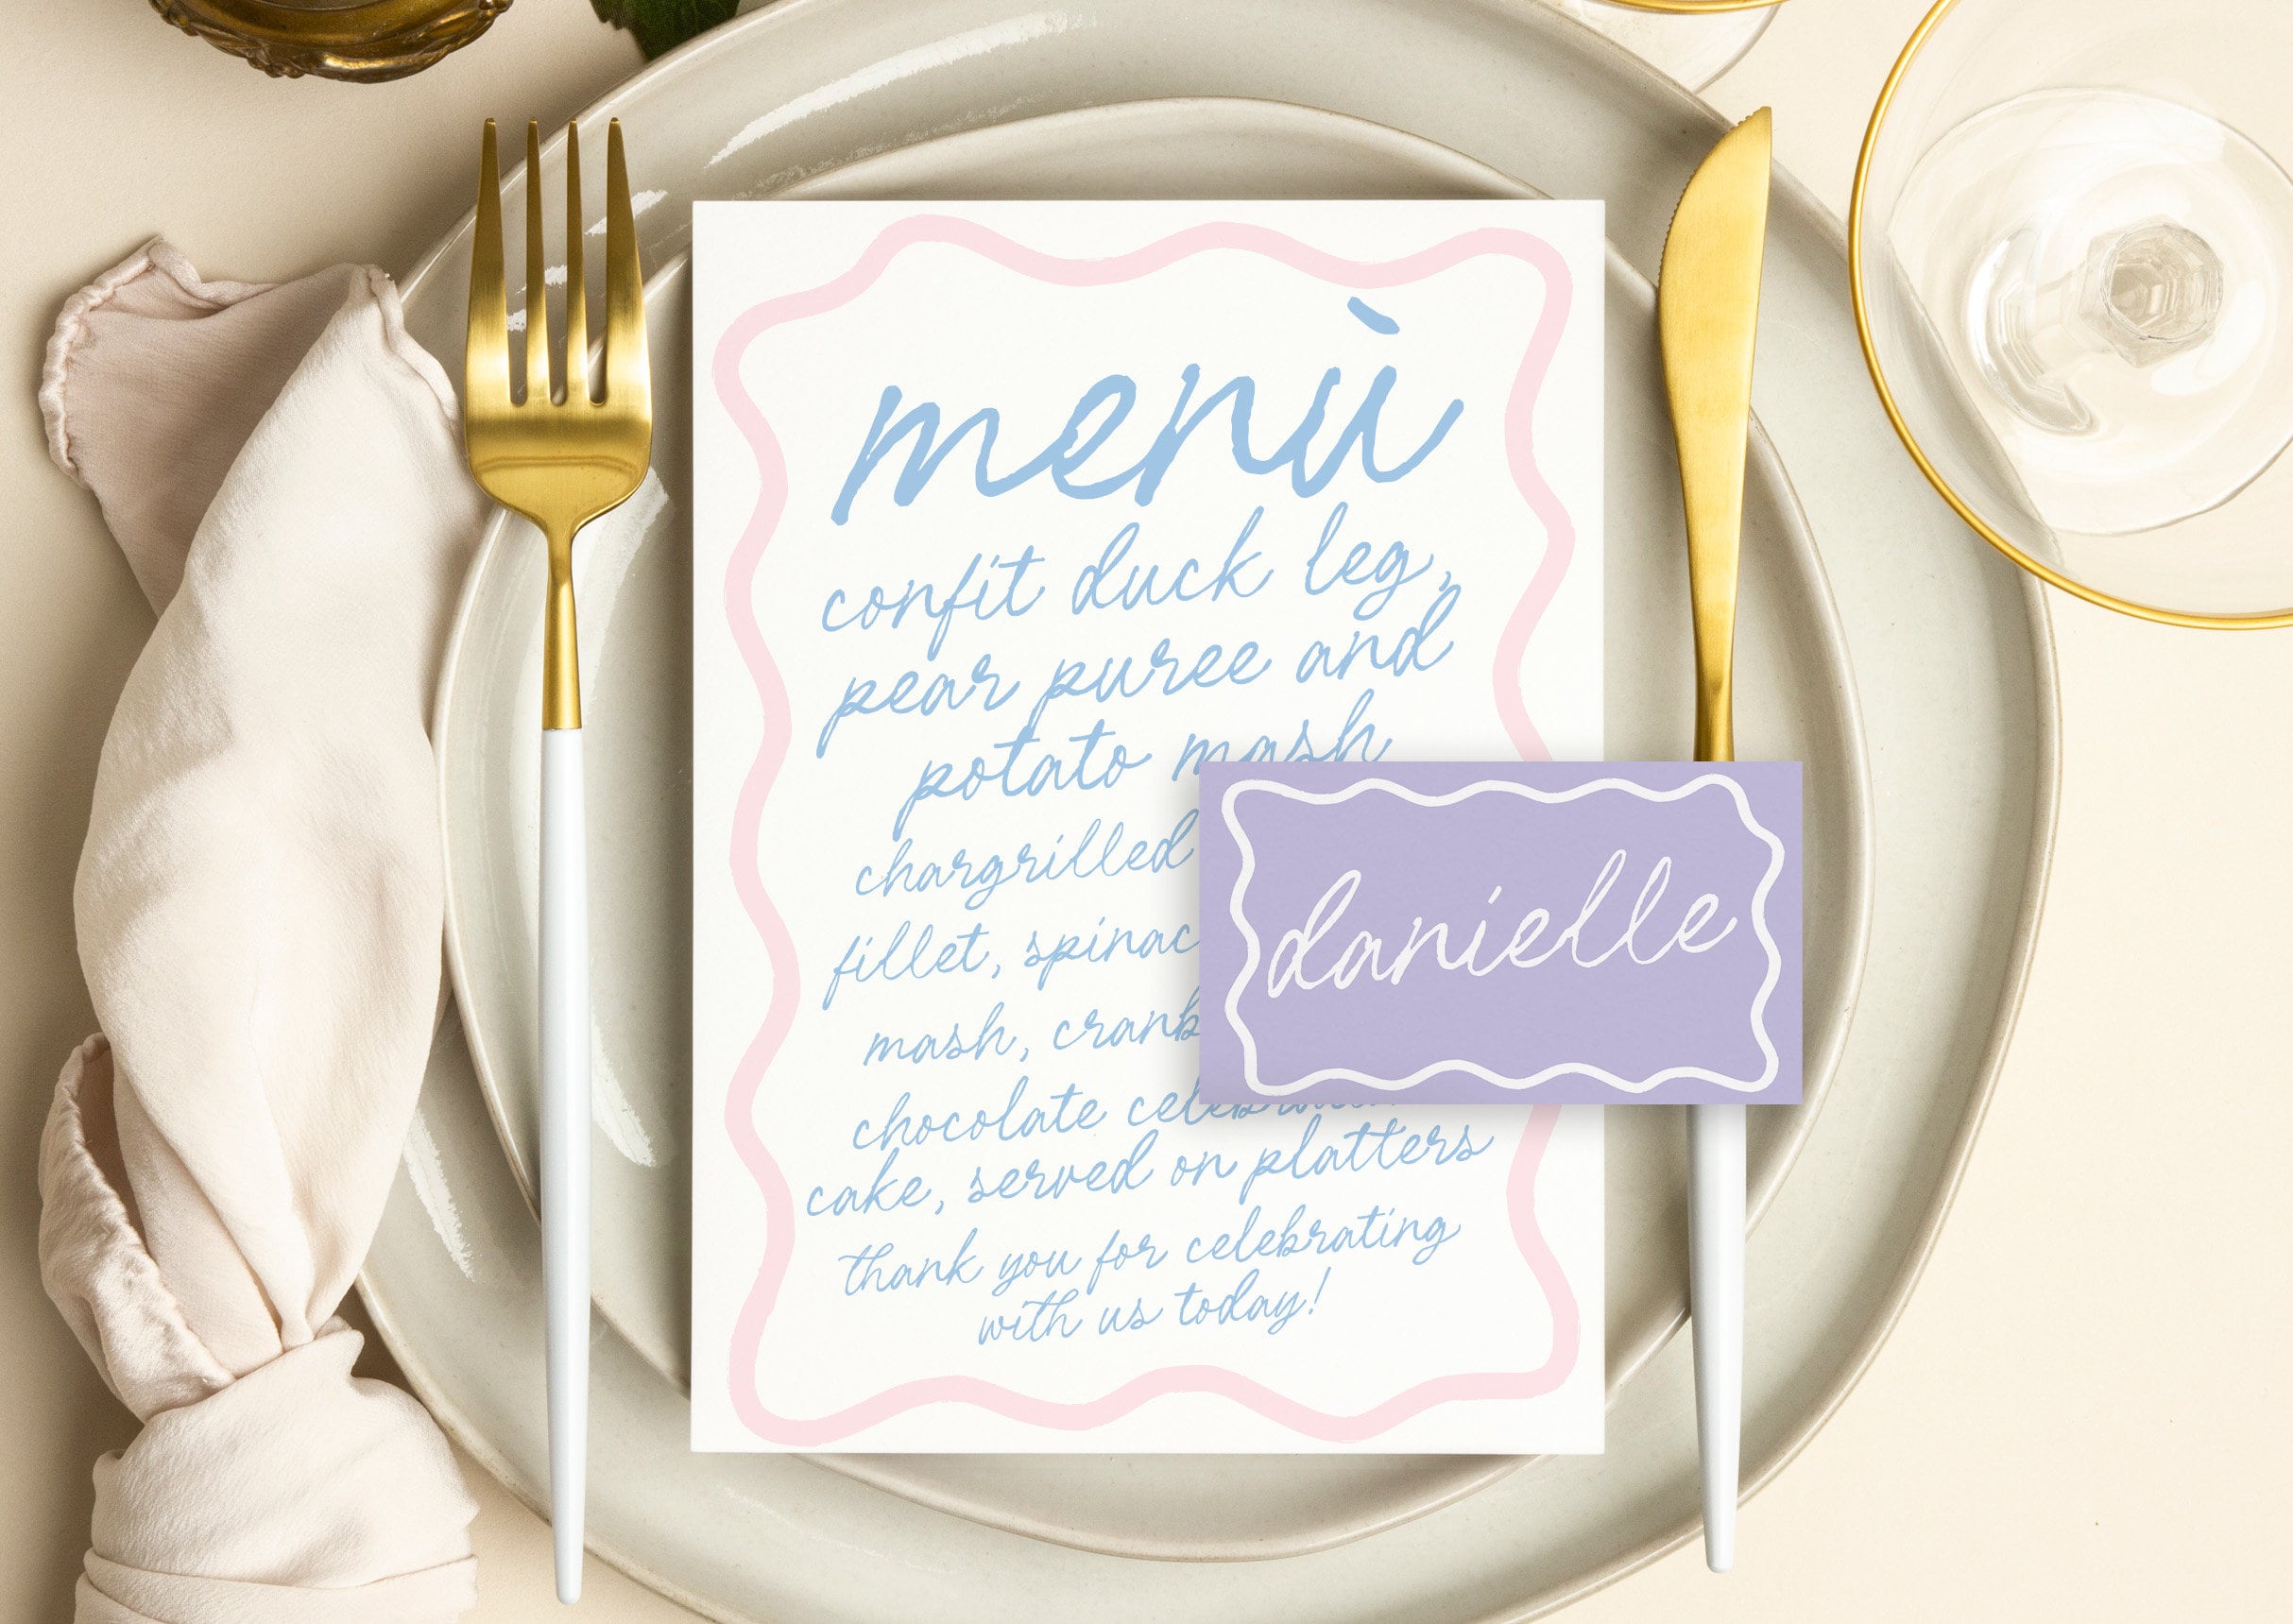 menù
confit duck leg,
pear puree and
potato mash
chargrilled
fillet,
mash,
chocolate
cake, served on platters
thank you for celebrating
with us today!
danielle